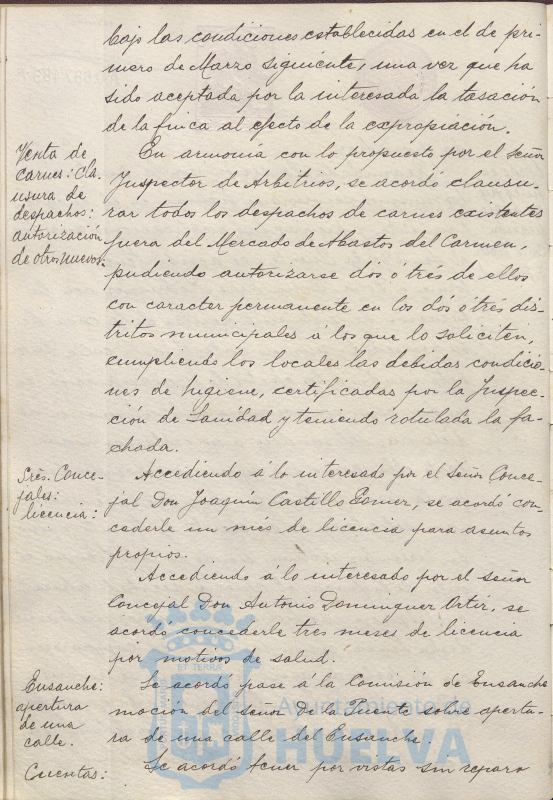 bajo las condiciones establecidas en el de pri-
mero de Marzo siguiente, una vez que ha
sido aceptada por la interesada la tasación
de la finca al efecto de la expropiación.
Venta de
carnes: clau-
sura de
despachos:
autorización
de otros nuevos.
En armonía con lo propuesto por el señor
Inspector de Arbitrios, se acordó clausu-
rar todos los despachos de carnes existentes
fuera del Mercado de Abastos del Carmen,
pudiendo autorizarse dos ó trés de ellos
con caracter permanente en los dós ó trés dis-
tritos municipales á los que lo soliciten,
cumpliendo los locales las debidas condicio-
nes de higiene, certificadas por la Inspec-
ción de Sanidad y teniendo rotulada la fa-
chada.
Srés. Conce-
jales:
licencia:
Accediendo á lo interesado por el Señor Conce-
jal Don Joaquín Castillo Gomez, se acordó con-
cederle un més de licencia para asuntos
propios.
Accediendo á lo interesado por el señor
Concejal Don Antonio Dominguez Ortiz, se
acordó concederle tres meses de licencia
por motivos de salud.
Ensanche:
apertura
de una
calle.
Se acordo pase á la Comisión de Ensanche
moción del señor De la Puente sobre apertu-
ra de una calle del Ensanche.
Cuentas:
Se acordó tener por vistas sin reparo
ET TERRA
Ayuntamiento de
HUELVA